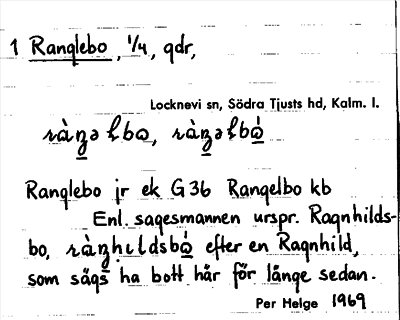 1 Ranglebo, 1/4, gdr,
Locknevi sn, Södra Tjusts hd, Kalm. l.
Ranglebo jr ek G36 Rangelbo kb
Enl. sagesmannen urspr. Ragnhilds-
bo, efter en Ragnhild,
som sägs ha bott här för länge sedan.
Per Helge 1969